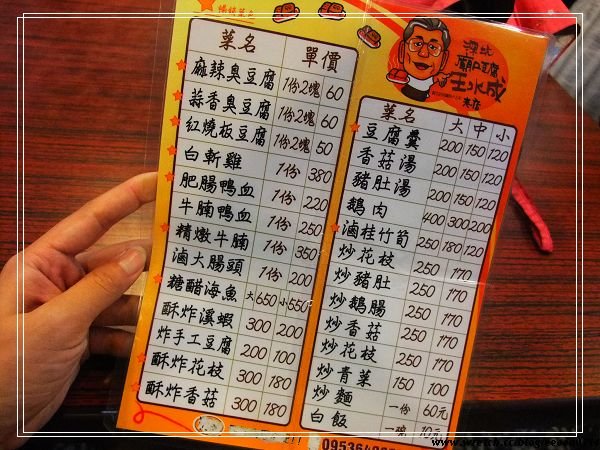 菜名 單價
麻辣臭豆腐 1份2塊 60
蒜香臭豆腐 1份2塊 60
紅燒板豆腐 1份2塊 50
白斬雞 1份 380
肥腸鴨血 1份 220
牛腩鴨血 1份 250
精燉牛腩 1份 350
滷大腸頭 1份 200
糖醋海魚 大650 小550
酥炸溪蝦 300 200
炸手工豆腐 200 100
酥炸花枝 300 180
酥炸香菇 300 180
深坑
廟口豆腐
王水成
本店
菜名 大 中 小
豆腐羹 200 150 120
香菇湯 200 150 120
豬肚湯 200 150 120
鵝肉 400 300 200
滷桂竹筍 250 180 120
炒花枝 250 170
炒豬肚 250 170
炒鵝腸 250 170
炒香菇 250 170
炒花枝 250 170
炒青菜 150 100
炒麵 一份 60元
白飯 一碗 10元